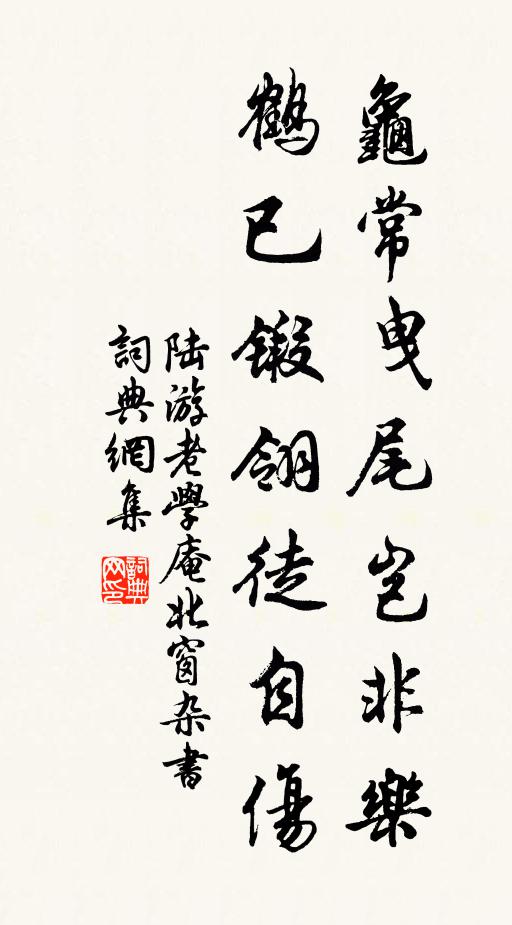 龜常曳尾岂非樂
鶴已鍛翎徒自傷
陆游老學庵北窗杂書
詞典網集
詞典网印